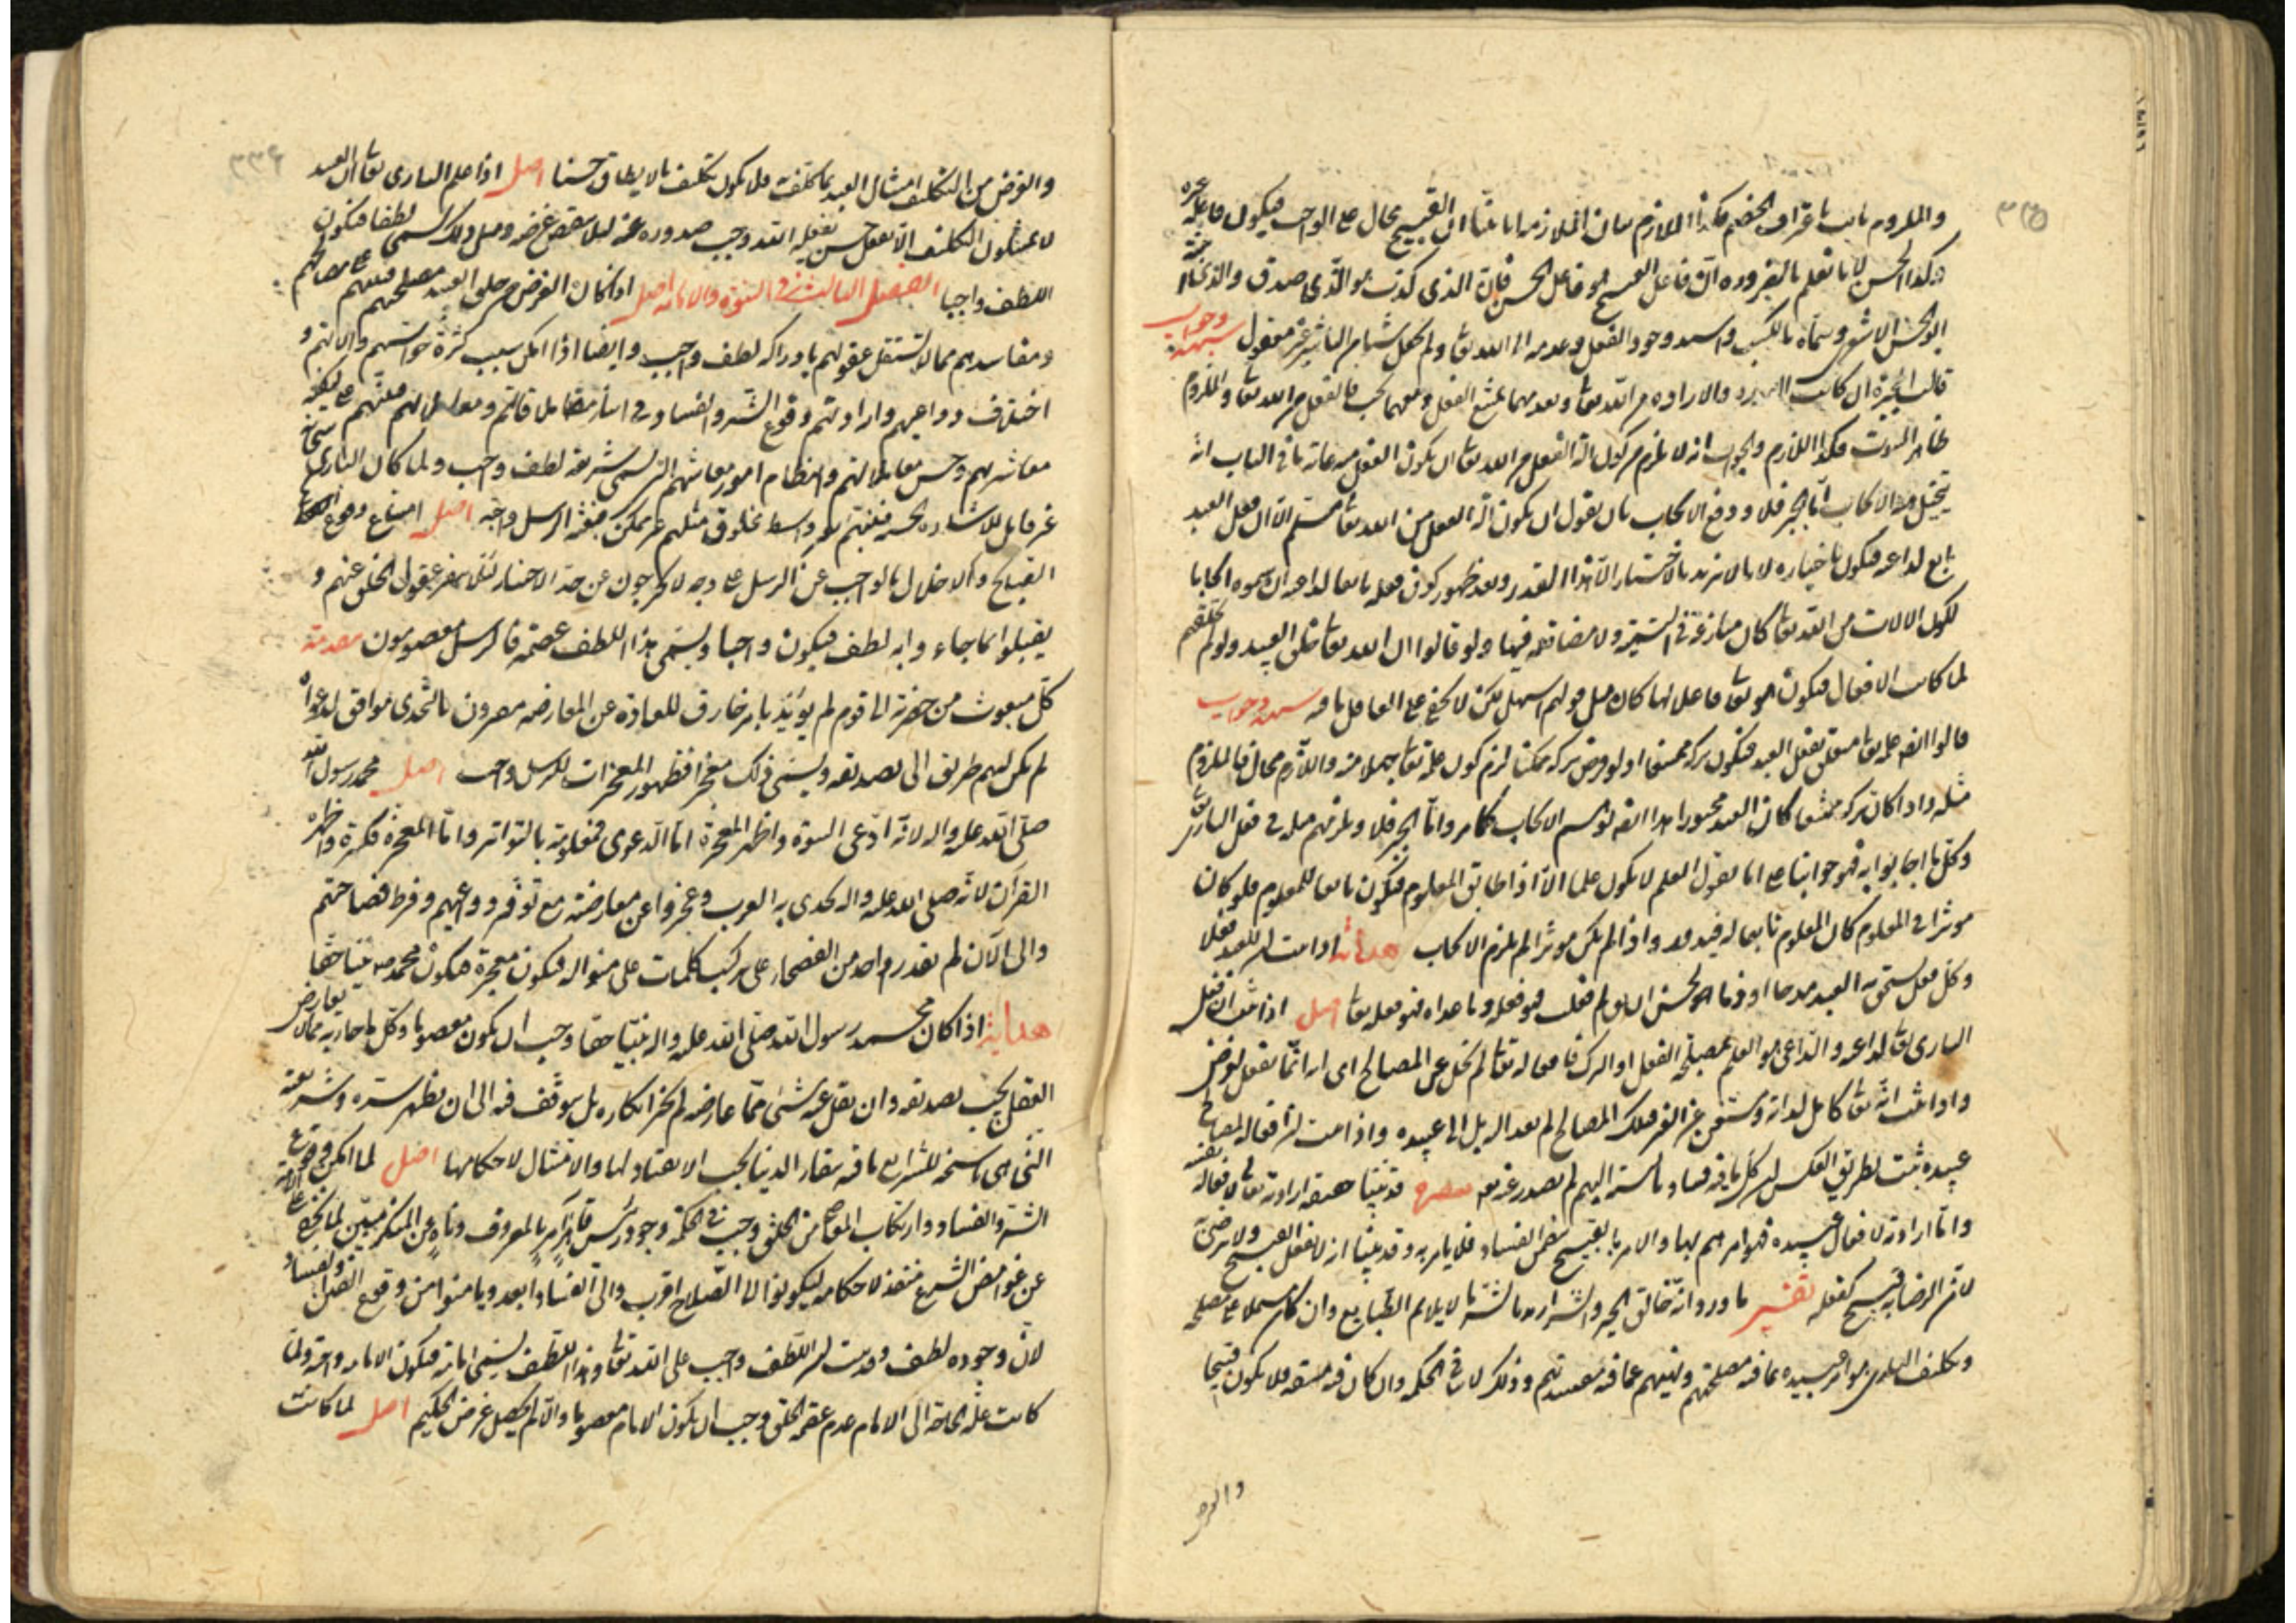 ٣٣٥
والملزوم ثابت باعتراف الخصم فكذا اللازم بيان الملازمة انا بينا ان القبيح محال على الواجب فيكون فاعله غيره
وكذا الحسن لانا نعلم بالضرورة ان فاعل القبيح هو فاعل الحسن فان الذى كذب هو الذى صدق والذى
ابو الحسن الاشعرى وسماه بالكسب واسند وجود الفعل وعدمه الى الله تعا ولم يجعل للعبد شيئا من التأثير غير معقول شبهة وجواب
قالت الجبرة ان كانت القدرة والارادة من الله تعا وبعدمهما يمتنع الفعل ومعهما يجب فالفعل من الله تعا والملزوم
ظاهر الثبوت فكذا اللازم والجواب انه لا يلزم من كون الة الفعل من الله تعا ان يكون الفعل منه غاية ما فى الباب انه
يتخيل منه الايجاب اما الجبر فلا ودفع الايجاب بان يقول ان يكون الة الفعل من الله تعا مسلم الا ان فعل العبد
تابع لداعيه فيكون باختياره لانا لا نريد بالاختيار الا هذا القدر وبعد ظهور كون فعله تابعا لداعيه ان سموه ايجابا
لكون الالات من الله تعا كان منازعة فى التسمية ولا مضايقة فيها ولو قالوا ان الله تعا خلق العبيد ولو لم يخلقهم
لما كانت الافعال فيكون هو تعا فاعلا لها كان مثل قولهم اسهل لكن لا يخفى على العاقل ما فيه شبهة وجواب
قالوا ايضا علم الله تعا متعلق بفعل العبد فيكون تركه ممتنعا اذ لو فرض تركه ممكنا لزم كون علمه تعا جهلا منه واللازم محال فالملزوم
مثله واذا كان تركه ممتنعا كان العبد مجبورا هذا ايضا يوهم الايجاب كما مر واما الجبر فلا ويلزمهم مثله فى فعل البارى تعا
وكل ما اجابوا به فهو جوابنا على انا نقول العلم لا يكون علما الا اذا طابق المعلوم فيكون تابعا للمعلوم فلو كان
موثرا فى المعلوم كان المعلوم تابعا له فيدور واذا لم يكن موثرا لم يلزم الايجاب هداية اذا ثبت ان للعبد فعلا
وكل فعل يستحق به العبد مدحا او ذما او يحسن ان يقال له لم فعلت فهو فعله وما عداه فهو فعله تعا اصل اذا ثبت ان فعل
البارى تعا لداعيه والداعى هو العلم بمصلحة الفعل او الترك فافعاله تعا لم تخل عن المصالح اى انه انما يفعل لغرض
واذا ثبت انه تعا كامل لذاته ومستغن عن الغير فتلك المصالح لم تعد اليه بل الى عبيده واذا ثبت ان افعاله لمصالح
عبيده ثبت بطريق العكس ان كل ما فيه فساد بالنسبة اليهم لم يصدر عنه تعا تبصرة قد بينا حقيقة ارادته تعالى لافعاله بنفسه
واما ارادته لافعال عبيده فهو امرهم بها والامر بالقبيح يتضمن الفساد فلا يامر به وقد بينا انه لا يفعل القبيح ولا يرضى به
لان الرضا بالقبيح قبيح كفعله تفسير ما ورد انه خالق الخير والشر اريد بالشر ما لا يلائم الطبايع وان كان مشتملا على مصلحة
وتكليف البارى هو امر عبيده بما فيه مصلحتهم ونهيهم عما فيه مفسدتهم وذلك لا ينافى الحكمة وان كان فيه مشقة فلا يكون قبيحا
والغرض
٣٣٦
والغرض من التكليف امتثال العبد بما كلفت فلا يكون تكليف ما لا يطاق حسنا اصل اذا علم البارى تعا ان العبيد
لا يمتثلون التكليف الا بفعل حسن يفعله الله وجب صدوره عنه لئلا ينتقض غرضه ومثل ذلك يسمى لطفا فيكون
اللطف واجبا الفصل الثالث فى النبوة والامامة اصل اذا كان الغرض من خلق العبيد مصلحتهم فتنبيههم على مصالحهم
ومفاسدهم مما لا تستقل عقولهم بادراكه لطف واجب وايضا اذا امكن بسبب كثرة حواسهم والاتهم و
اختلاف دواعيهم وارادتهم وقوع الشر والفساد فى اثناء ملاقاتهم ومعاملاتهم فتنبيههم على كيفية
معاشرتهم وحسن معاملاتهم وانتظام امور معاشهم التى تسمى شريعة لطف واجب ولما كان البارى سبحانه
غير قابل للاشارة الحسية فتنبيههم بغير واسطة مخلوق مثلهم غير ممكن فبعثة الرسل واجبة اصل امتناع وقوع
القبايح والاخلال بالواجب عن الرسل على وجه لا يخرجون عن حد الاختيار لئلا ينفر عقول الخلق عنهم و
يقبلوا بما جاءوا به لطف فيكون واجبا ويسمى هذا اللطف عصمة فالرسل معصومون مقدمة
كل مبعوث من حضرته الى قوم لم يؤيد بامر خارق للعادة عن المعارضة مقرون بالتحدى موافق لدعواه
لم يكن لهم طريق الى تصديقه ويسمى ذلك معجزا فظهور المعجزات للرسل واجب اصل محمد رسول الله
صلى الله عليه واله لانه ادعى النبوة واظهر المعجزة اما الدعوى فمعلومة بالتواتر واما المعجزة فكثيرة واظهرها
القرآن لانه صلى الله عليه واله تحدى به العرب وعجزوا عن معارضته مع توفر دواعيهم وفرط فصاحتهم
والى الآن لم يقدر واحد من الفصحاء على تركيب كلمات على منواله فيكون معجزة فيكون محمد ص نبيا حقا
هداية اذا كان محمد رسول الله صلى الله عليه واله نبيا حقا وجب ان يكون معصوما وكل ما جاء به مما لا يعارض
العقل يجب تصديقه وان نقل عنه شئ مما عارضه لم يجز انكاره بل يتوقف فيه الى ان يظهر سره وشريعته
التى هى ناسخة للشرايع باقية ببقاء الدنيا يجب الانقياد لها والامتثال لاحكامها اصل لما امكن وقوع
الشر والفساد وارتكاب المعاصى من الخلق وجب فى الحكمة وجود رئيس قاهر آمر بالمعروف وناه عن المنكر مبين لما يخفى على الامة
عن غوامض الشرع منفذ لاحكامه ليكونوا الى الصلاح اقرب والى الفساد ابعد ويامنوا من وقوع الفتن والفساد
لان وجوده لطف وقد ثبت ان اللطف واجب على الله تعا وهذا اللطف يسمى امامة فيكون الامامة واجبة ولما
كانت علة الحاجة الى الامام عدم عصمة الخلق وجب ان يكون الامام معصوما والا لم يحصل غرض الحكيم اصل لما كانت